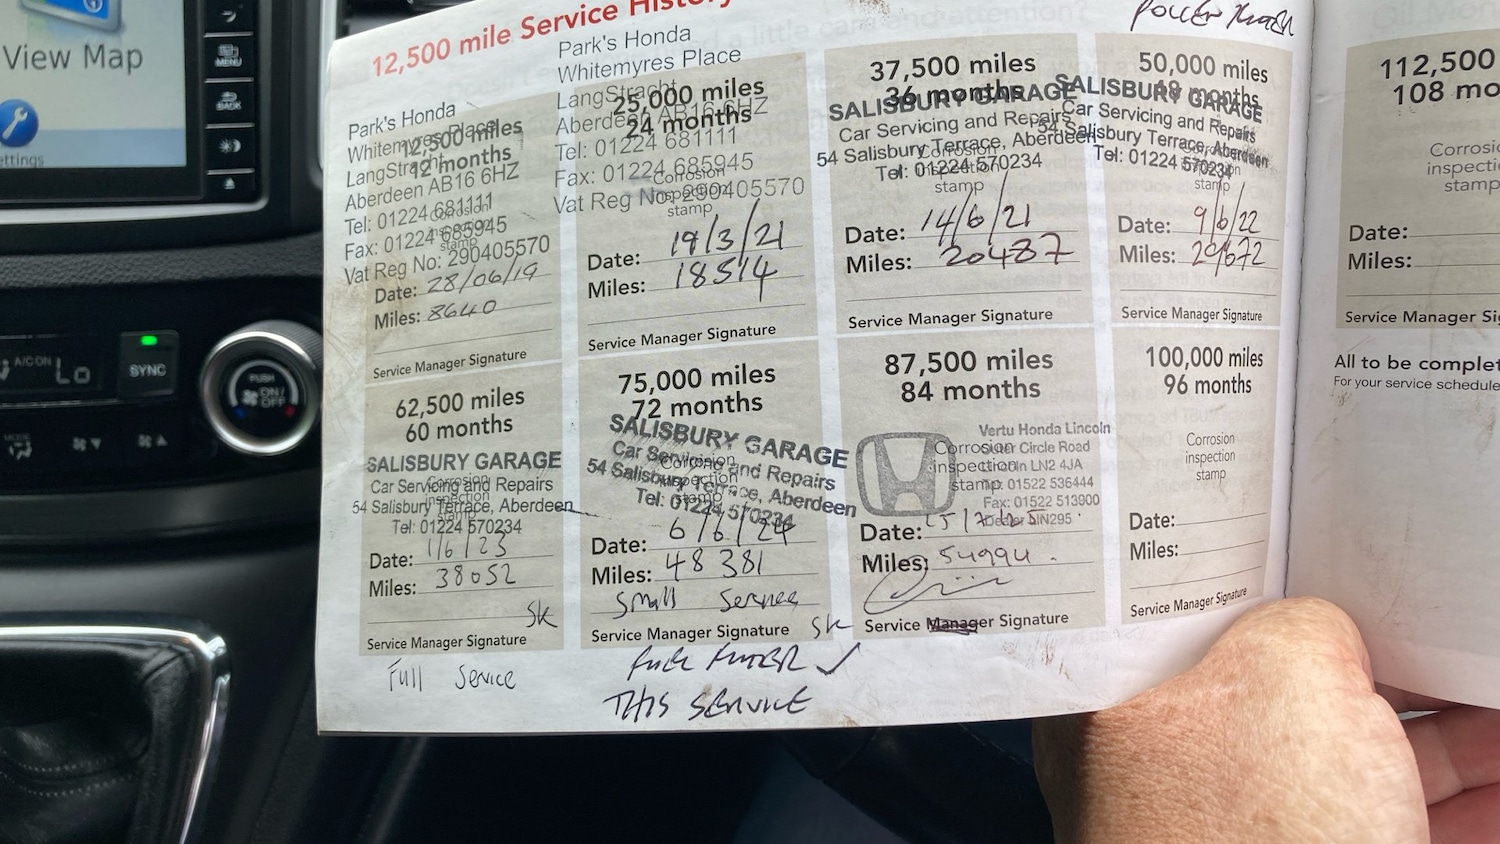 View Map
ettings
MENU
BACK
A/C ON
Lo
SYNC
PUSH
ON/
OFF
MODE
12,500 mile Service History
POLLEN FILTER
Park's Honda
Whitemyres Place
LangStracht
Aberdeen AB16 6HZ
Tel: 01224 681111
Fax: 01224 685945
Vat Reg No: 290405570
12,500 miles
12 months
Corrosion
inspection
stamp
Date: 28/06/19
Miles: 8640
Service Manager Signature
Park's Honda
Whitemyres Place
LangStracht
Aberdeen AB16 6HZ
Tel: 01224 681111
Fax: 01224 685945
Vat Reg No: 290405570
25,000 miles
24 months
Corrosion
inspection
stamp
Date: 19/3/21
Miles: 18514
Service Manager Signature
37,500 miles
36 months
SALISBURY GARAGE
Car Servicing and Repairs
54 Salisbury Terrace, Aberdeen
Tel: 01224 570234
Corrosion
inspection
stamp
Date: 14/6/21
Miles: 20487
Service Manager Signature
50,000 miles
48 months
SALISBURY GARAGE
Car Servicing and Repairs
54 Salisbury Terrace, Aberdeen
Tel: 01224 570234
Corrosion
inspection
stamp
Date: 9/6/22
Miles: 29672
Service Manager Signature
62,500 miles
60 months
SALISBURY GARAGE
Car Servicing and Repairs
54 Salisbury Terrace, Aberdeen
Tel: 01224 570234
Corrosion
inspection
stamp
Date: 1/6/23
Miles: 38052
SK
Service Manager Signature
Full Service
75,000 miles
72 months
SALISBURY GARAGE
Car Servicing and Repairs
54 Salisbury Terrace, Aberdeen
Tel: 01224 570234
Corrosion
inspection
stamp
Date: 6/6/24
Miles: 48381
Small Service
Service Manager Signature SK
FUEL FILTER ✓
THIS SERVICE
87,500 miles
84 months
Vertu Honda Lincoln
Outer Circle Road
Lincoln LN2 4JA
Tel: 01522 536444
Fax: 01522 513900
Dealer
Corrosion
inspection
stamp
Date:
Miles: 54994
Service Manager Signature
100,000 miles
96 months
Corrosion
inspection
stamp
Date:
Miles:
Service Manager Signature
112,500
108 mo
Corrosic
inspecti
stamp
Date:
Miles:
Service Manager Si
All to be complet
For your service schedule